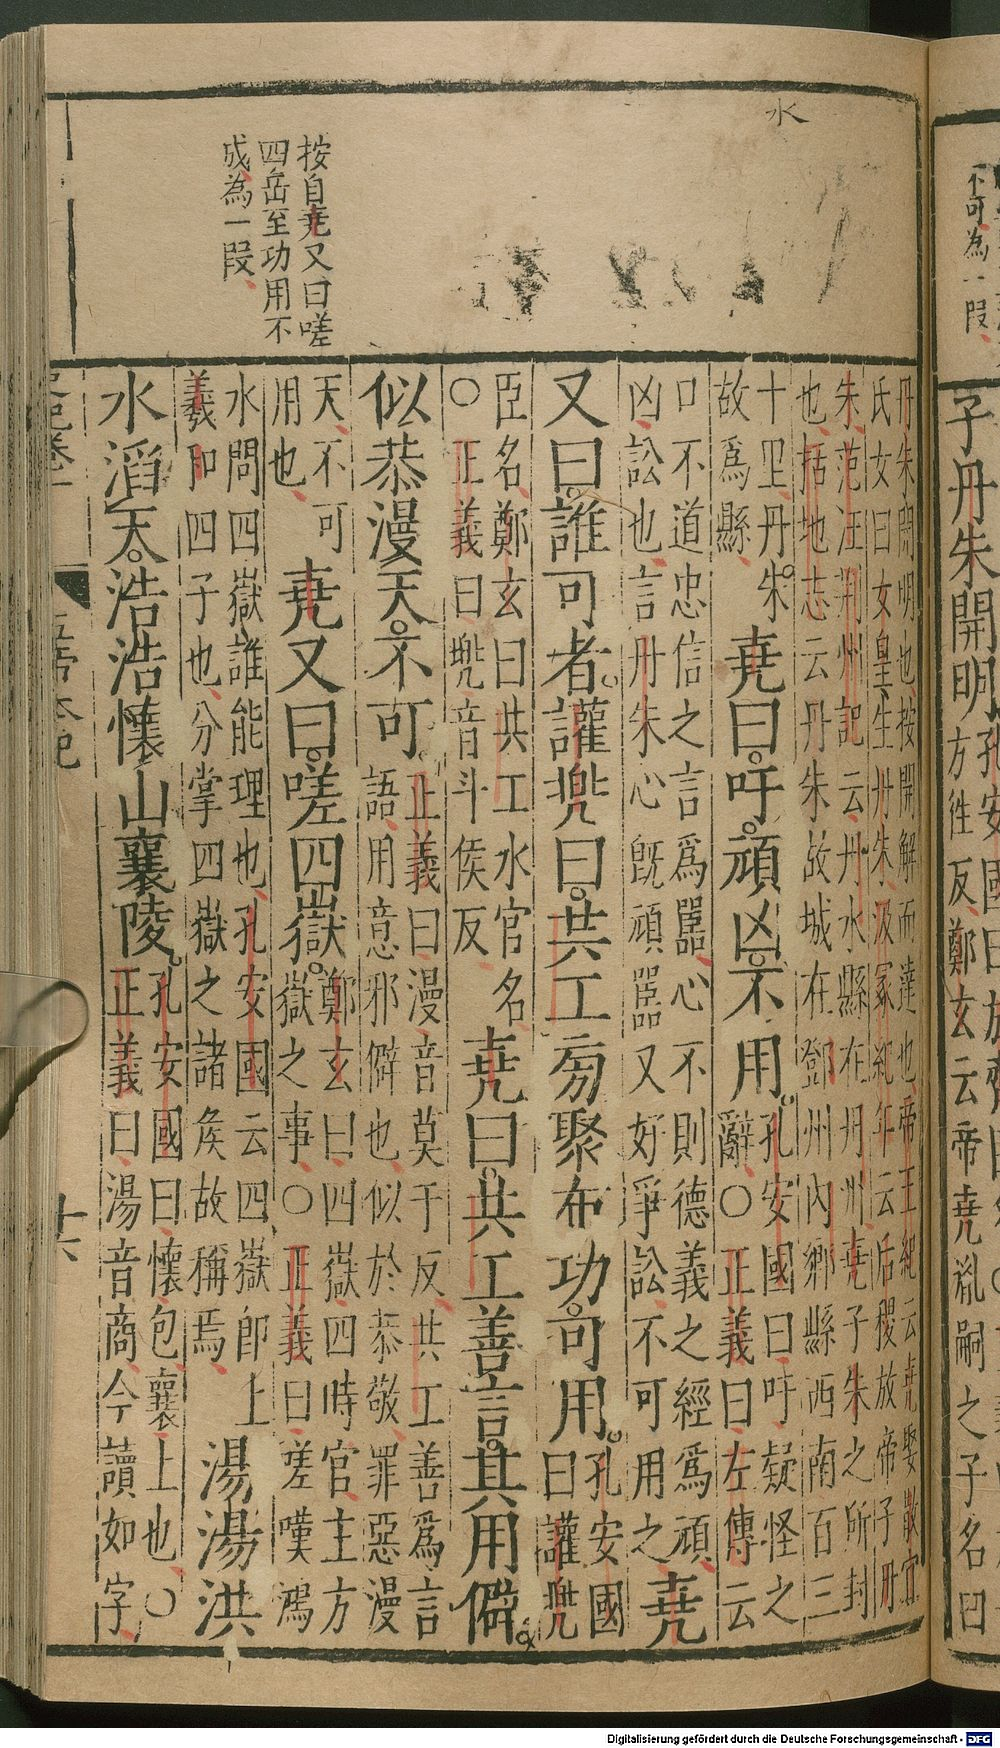 水
按自堯又曰嗟
四岳至功用不
成為一段
丹朱開明也按開解而達也帝王紀云堯娶散宜
氏女曰女皇生丹朱汲冢紀年云后稷放帝子丹
朱范汪荊州記云丹水縣在丹川堯子朱之所封
也括地志云丹朱故城在鄧州內鄉縣西南百三
十里丹朱
故爲縣
堯曰吁頑凶不用
孔安國曰吁疑怪之
辭○正義曰左傳云
口不道忠信之言爲嚚心不則德義之經爲頑
凶訟也言丹朱心既頑嚚又好爭訟不可用之
堯
又曰誰可者讙兜曰共工旁聚布功可用
孔安國
曰讙兜
臣名鄭玄曰共工水官名
○正義曰兜音斗侯反
堯曰共工善言其用僻
似恭漫天不可
正義曰漫音莫于反共工善爲言
語用意邪僻也似於恭敬罪惡漫
天不可
用也
堯又曰嗟四嶽
鄭玄曰四嶽四時官主方
嶽之事○正義曰嗟嘆鴻
水問四嶽誰能理也孔安國云四嶽即上
羲和四子也分掌四嶽之諸侯故稱焉
湯湯洪
水滔天浩浩懷山襄陵
孔安國曰懷包襄上也○
正義曰湯音商今讀如字
史記卷一 五帝本紀 十六
不可為一段
子丹朱開明
方往反鄭玄云帝堯胤嗣之子名曰
Digitalisierung gefördert durch die Deutsche Forschungsgemeinschaft - DFG